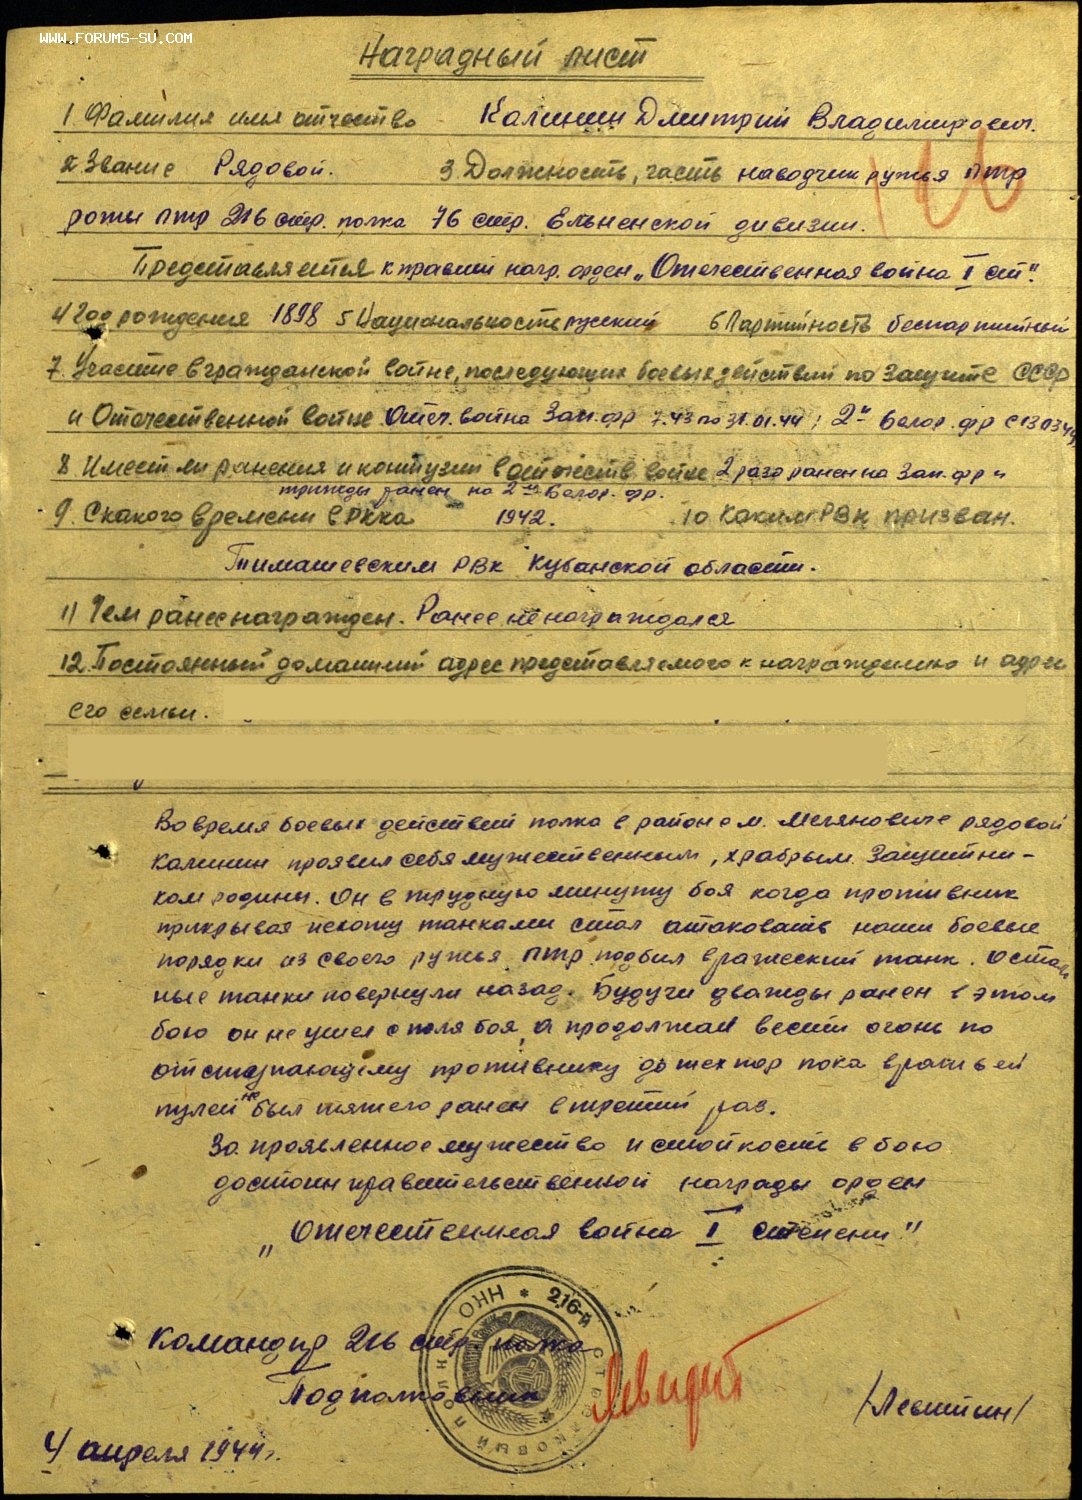 WWW.FORUMS-SU.COM
Наградный лист
1. Фамилия имя отчество Калинин Дмитрий Владимирович.
2. Звание Рядовой. 3. Должность, часть наводчик ружья птр
роты птр 216 стр. полка 76 стр. Ельненской дивизии.
Представляется к правит. нагр. орден „Отечественная война I ст".
4 Год рождения 1898 5 Национальность русский 6 Партийность беспартийный
7. Участие в гражданской войне, последующих боевых действий по защите СССР
и Отечественной войне Отеч. война Зап. фр 7.43 по 31.01.44; 2й Белор. фр с
8. Имеет ли ранения и контузии в отечеств. войне 2 раза ранен на Зап. фр и
трижды ранен на 2ом Белор. фр.
9. С какого времени в РККА 1942. 10 Каким РВК призван.
Тимашевским РВК Кубанской области.
11) Чем ранее награжден. Ранее не награждался
12. Постоянный домашний адрес представляемого к награждению и адрес
его семьи.
Во время боевых действий полка в районе м. рядовой
Калинин проявил себя мужественным, храбрым защитни-
ком родины. Он в трудную минуту боя когда противник
прикрывая пехоту танками стал атаковать наши боевые
порядки из своего ружья птр подбил вражеский танк. Осталь
ные танки повернули назад. Будучи дважды ранен в этом
бою он не ушел с поля боя, а продолжал вести огонь по
отступающему противнику до тех пор пока вражьей
пулей не был тяжело ранен в третий раз.
За проявленное мужество и стойкость в бою
достоин правительственной награды орден
„Отечественная война I степени"
Командир 216 стр. полка
Подполковник
/Левитин/
4 апреля 1944 г.
НКО * 216-й СТРЕЛКОВЫЙ ПОЛК